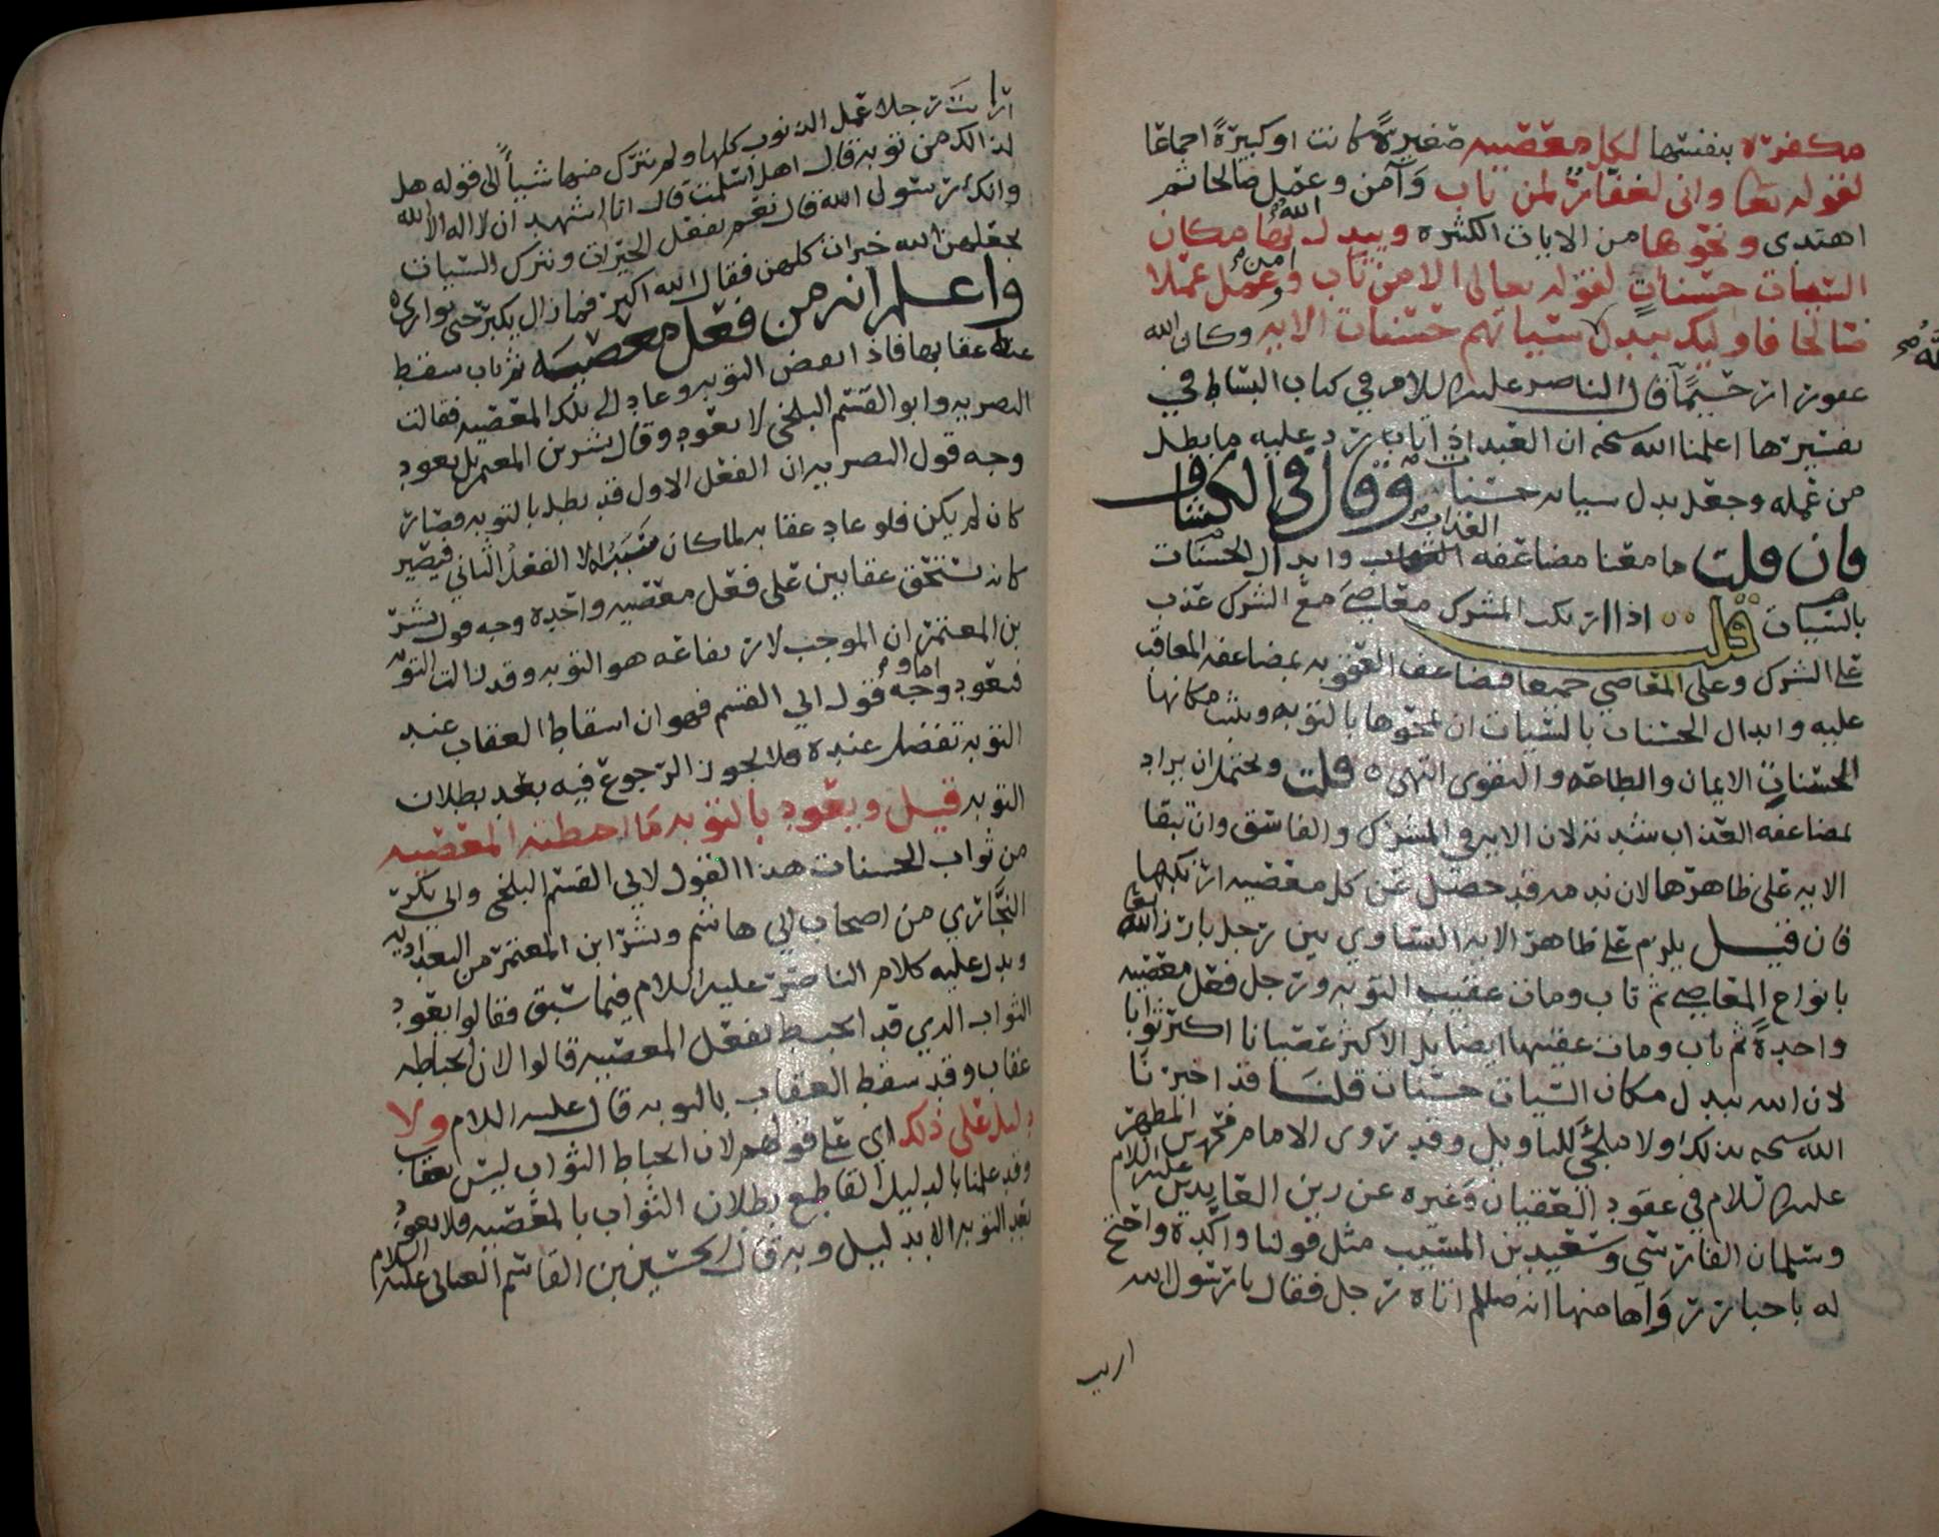 مكفرة بنفسها لكل معصية صغيرة كانت او كبيرة اجماعا
لقوله تعا واني لغفار لمن تاب وآمن وعمل صالحا ثم
اهتدى ونحوها من الايات الكثيره ويبدل الله بها مكان
السيئات حسنات لقوله تعالى الا من تاب وآمن وعمل عملا
صالحا فاوليك يبدل الله سياتهم حسنات الايه وكان الله
غفورا رحيما قال الناصر عليه السلام في كتاب البساط في
تفسيرها اعلمنا الله سبحنه ان العبد اذا تاب رد عليه ما بطل
من عمله وجعل بدل سيئاته حسنات وقال في الكشاف
فان قلت ما معنا مضاعفه العذاب وابدال الحسنات
بالسيات قلت اذا ارتكب المشرك معاصي مع الشرك عذب
على الشرك وعلى المعاصي جميعا فتضاعف العقوبه بمضاعفه المعاقب
عليه وابدال الحسنات بالسيات ان يمحوها بالتوبه ويثبت مكانها
الحسنات الايمان والطاعه والتقوى انتهى قلت ويحتمل ان يراد
بمضاعفه العذاب شدته لان الايه في المشرك والفاسق وان تبقا
الايه على ظاهرها لان ندمه قد حصل عن كل معصيه ارتكبها
فان قيل يلزم على ظاهر الايه التساوي بين رجل بارز الله تعا
بانواع المعاصي ثم تاب ومات عقيب التوبه ورجل فعل معصيه
واحدة ثم تاب ومات عقيبها ايضا بل الاكثر عصيانا اكثر ثوابا
لان الله يبدل مكان السيات حسنات قلنا قد اخبرنا
الله سبحنه بذلك ولا ملجئ للتاويل وقد روى الامام محمد بن المطهر
عليه السلام في عقود العقيان وغيره عن زين العابدين عليه السلام
وسلمان الفارسي وسعيد بن المسيب مثل قولنا واكده واحتج
له باخبار رواها منها انه صللم اتاه رجل فقال يا رسول الله
اريت
ارايت رجلا عمل الذنوب كلها ولم يترك منها شيأ الى قوله هل
لذالك من توبه قال اهل اسلمت قال انا اشهد ان لا اله الا الله
وانك رسول الله قال نعم تفعل الخيرات وتترك السيات
يجعلهن الله خيرات كلهن فقال الله اكبر فما زال يكبر حتى توارى
واعلم انه من فعل معصيه ثم تاب سقط
عنه عقابها فاذا نقض التوبه وعاد الى تلك المعصيه فقالت
البصريه وابو القسم البلخي لا يعود وقال بشر بن المعتمر بل يعود
وجه قول البصريه ان الفعل الاول قد بطل بالتوبه فصار
كان لم يكن فلو عاد عقابه لما كان سببه الا الفعل الثاني فيصير
كانه يستحق عقابين على فعل معصيه واحده وجه قول بشر
بن المعتمر ان الموجب لارتفاعه هو التوبه وقد زالت التوبه
فيعود واما وجه قول ابي القسم فهو ان اسقاط العقاب عند
التوبه تفضل عنده فلا يجوز الرجوع فيه بعد بطلان
التوبه قيل ويعود بالتوبه ما احبطته المعصيه
من ثواب الحسنات هذا القول لابي القسم البلخي وابي بكر
النجاري من اصحاب ابي هاشم وبشر ابن المعتمر من البغداديه
ويدل عليه كلام الناصر عليه السلام فيما سبق فقالوا يعود
الثواب الذي قد انحبط بفعل المعصيه قالوا لان احباطه
عقاب وقد سقط العقاب بالتوبه قال عليه السلام ولا
دليل على ذلك اي على قولهم لان احباط الثواب ليس بعقاب
وقد علمنا بالدليل القاطع بطلان الثواب بالمعصيه فلا يعود
بعد التوبه الا بدليل وبه قال الحسين بن القاسم العياني عليه السلام